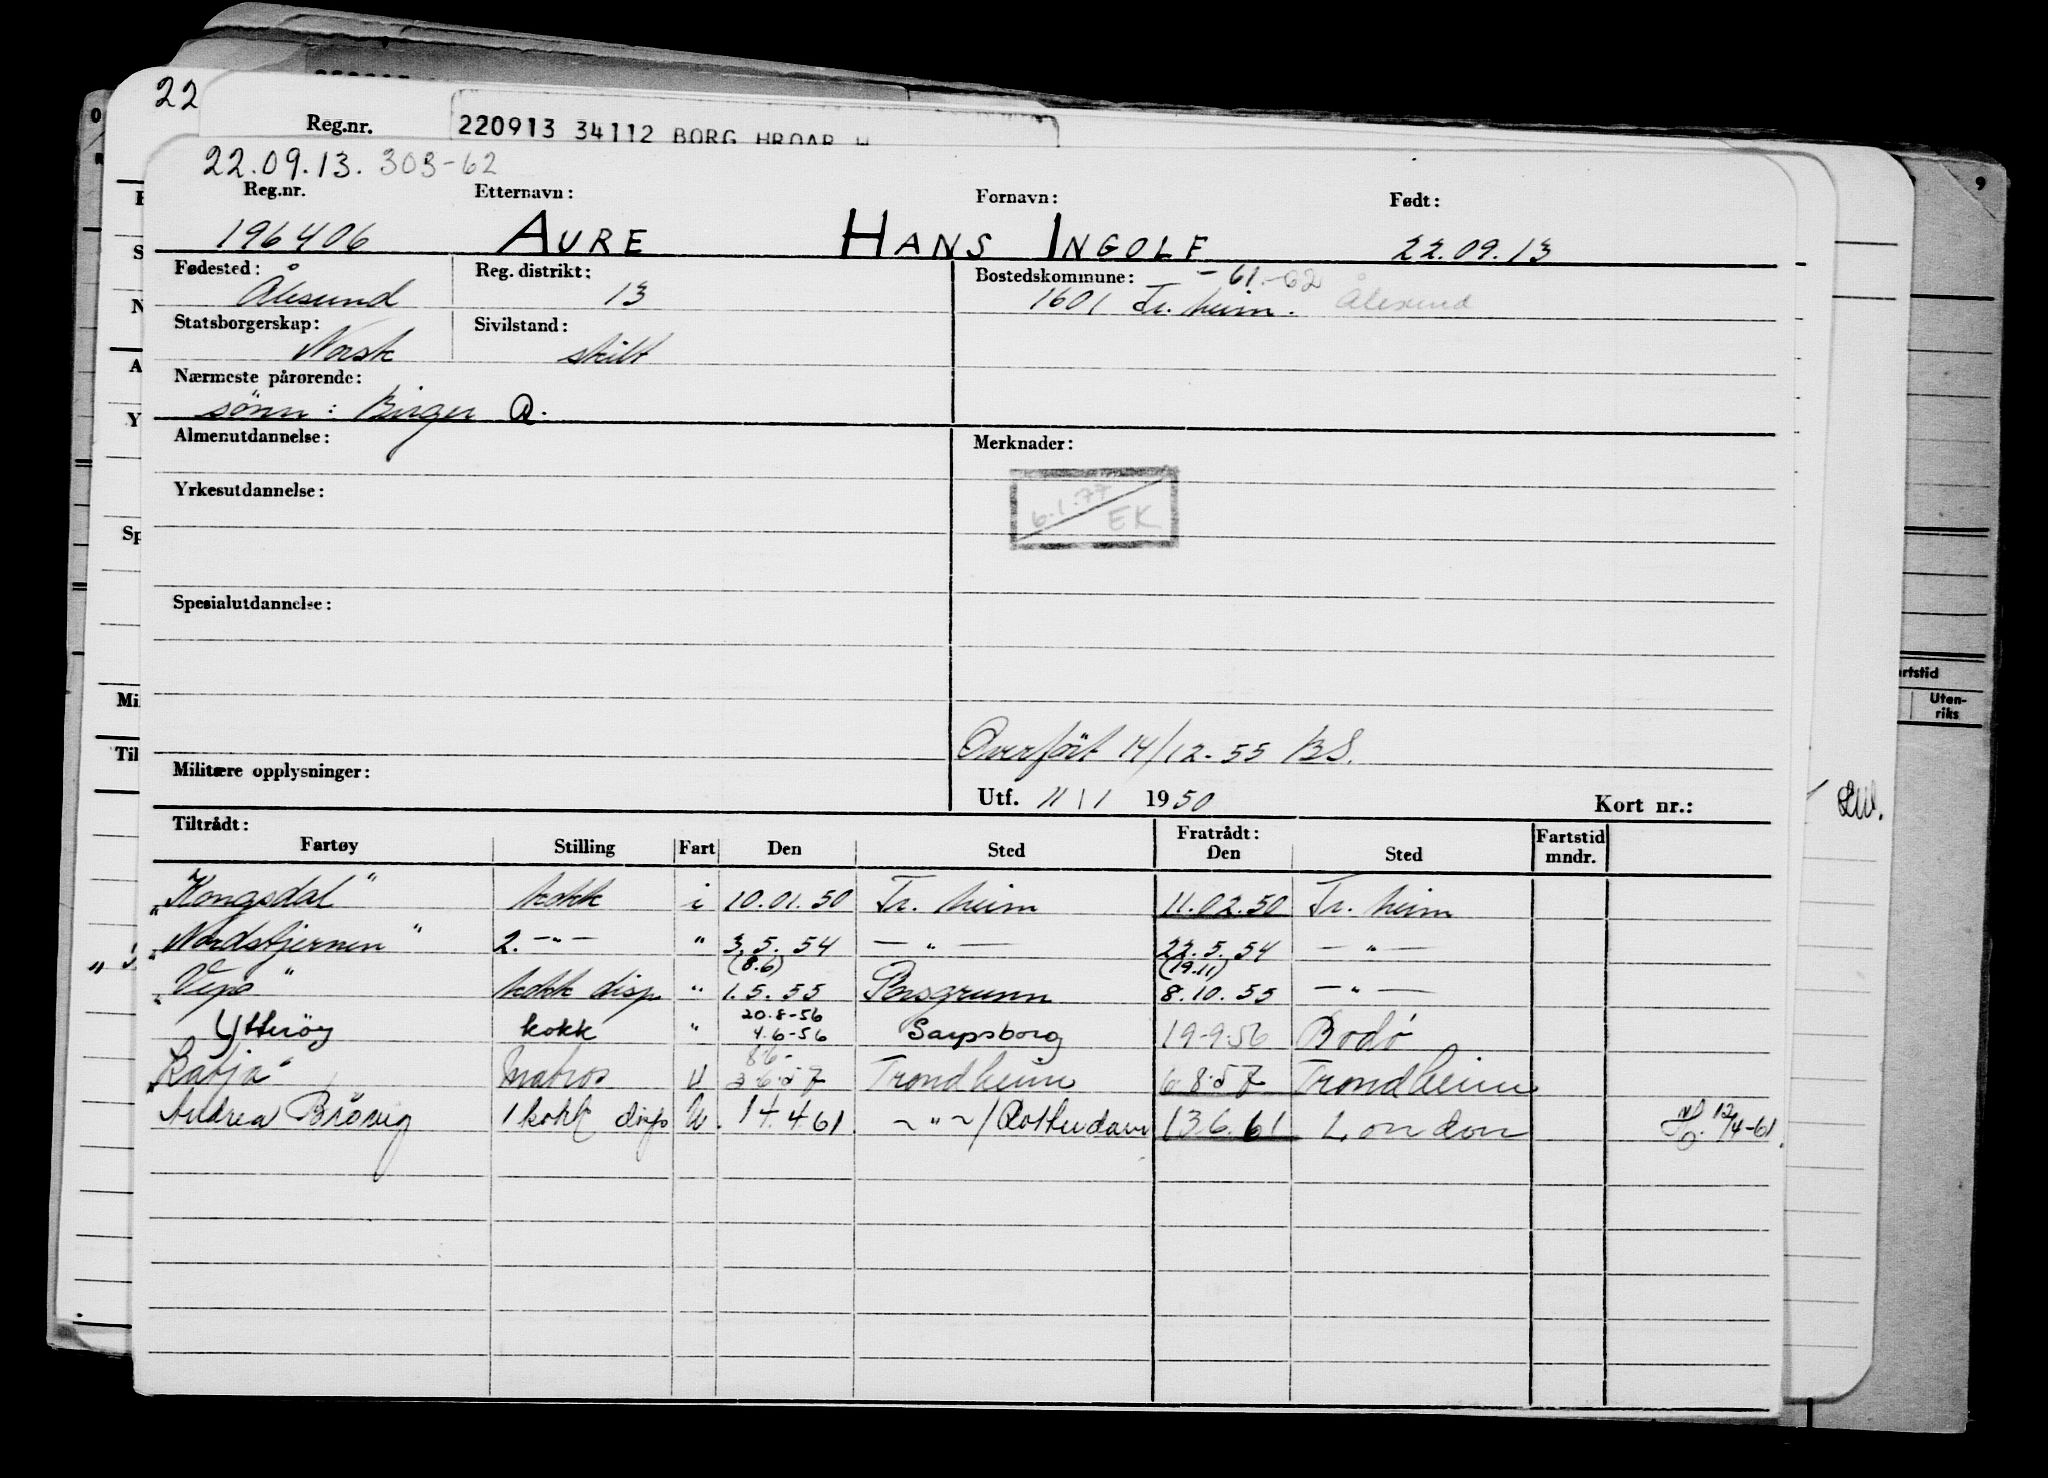 22
Reg.nr. 220913 34112 BORG HROAR W
22.09.13. 303-62
Reg.nr. Etternavn: Fornavn: Født:
196406 AURE HANS INGOLF 22.09.13
Fødested: Reg. distrikt: Bostedskommune: -61.-62
Ålesund 13 1601 Tr. heim. Ålesund
Statsborgerskap: Sivilstand:
Norsk skilt
Nærmeste pårørende:
sønn: Birger A.
Almenutdannelse: Merknader:
Yrkesutdannelse: 6.1.77 EK
Spesialutdannelse:
Overført 14/12-55 BS.
Militære opplysninger:
Utf. 11\1 1950 Kort nr.:
Tiltrådt: Fratrådt: Fartstid
Fartøy Stilling Fart Den Sted Den Sted mndr.
"Kongsdal" kokk i 10.01.50 Tr. heim 11.02.50 Tr. heim
"Nordstjernen" 2. -"- " 3.5.54 -"- 22.5.54 -"-
(8.6) (19.11)
"Vipo" kokk disp " 1.5.55 Porsgrunn 8.10.55 -"-
20.8-56
Ytterøy kokk " 4.6-56 Sarpsborg 19-9.56 Bodø
8.6-
"Katja" Matros U 3.6.57 Trondheim 6.8.57 Trondheim
Andrea Brøvig 1 kokk disp U. 14.4.61 ~"~/Rotterdam 13.6.61 London 12/4-61.
artstid
Uten-
riks
9